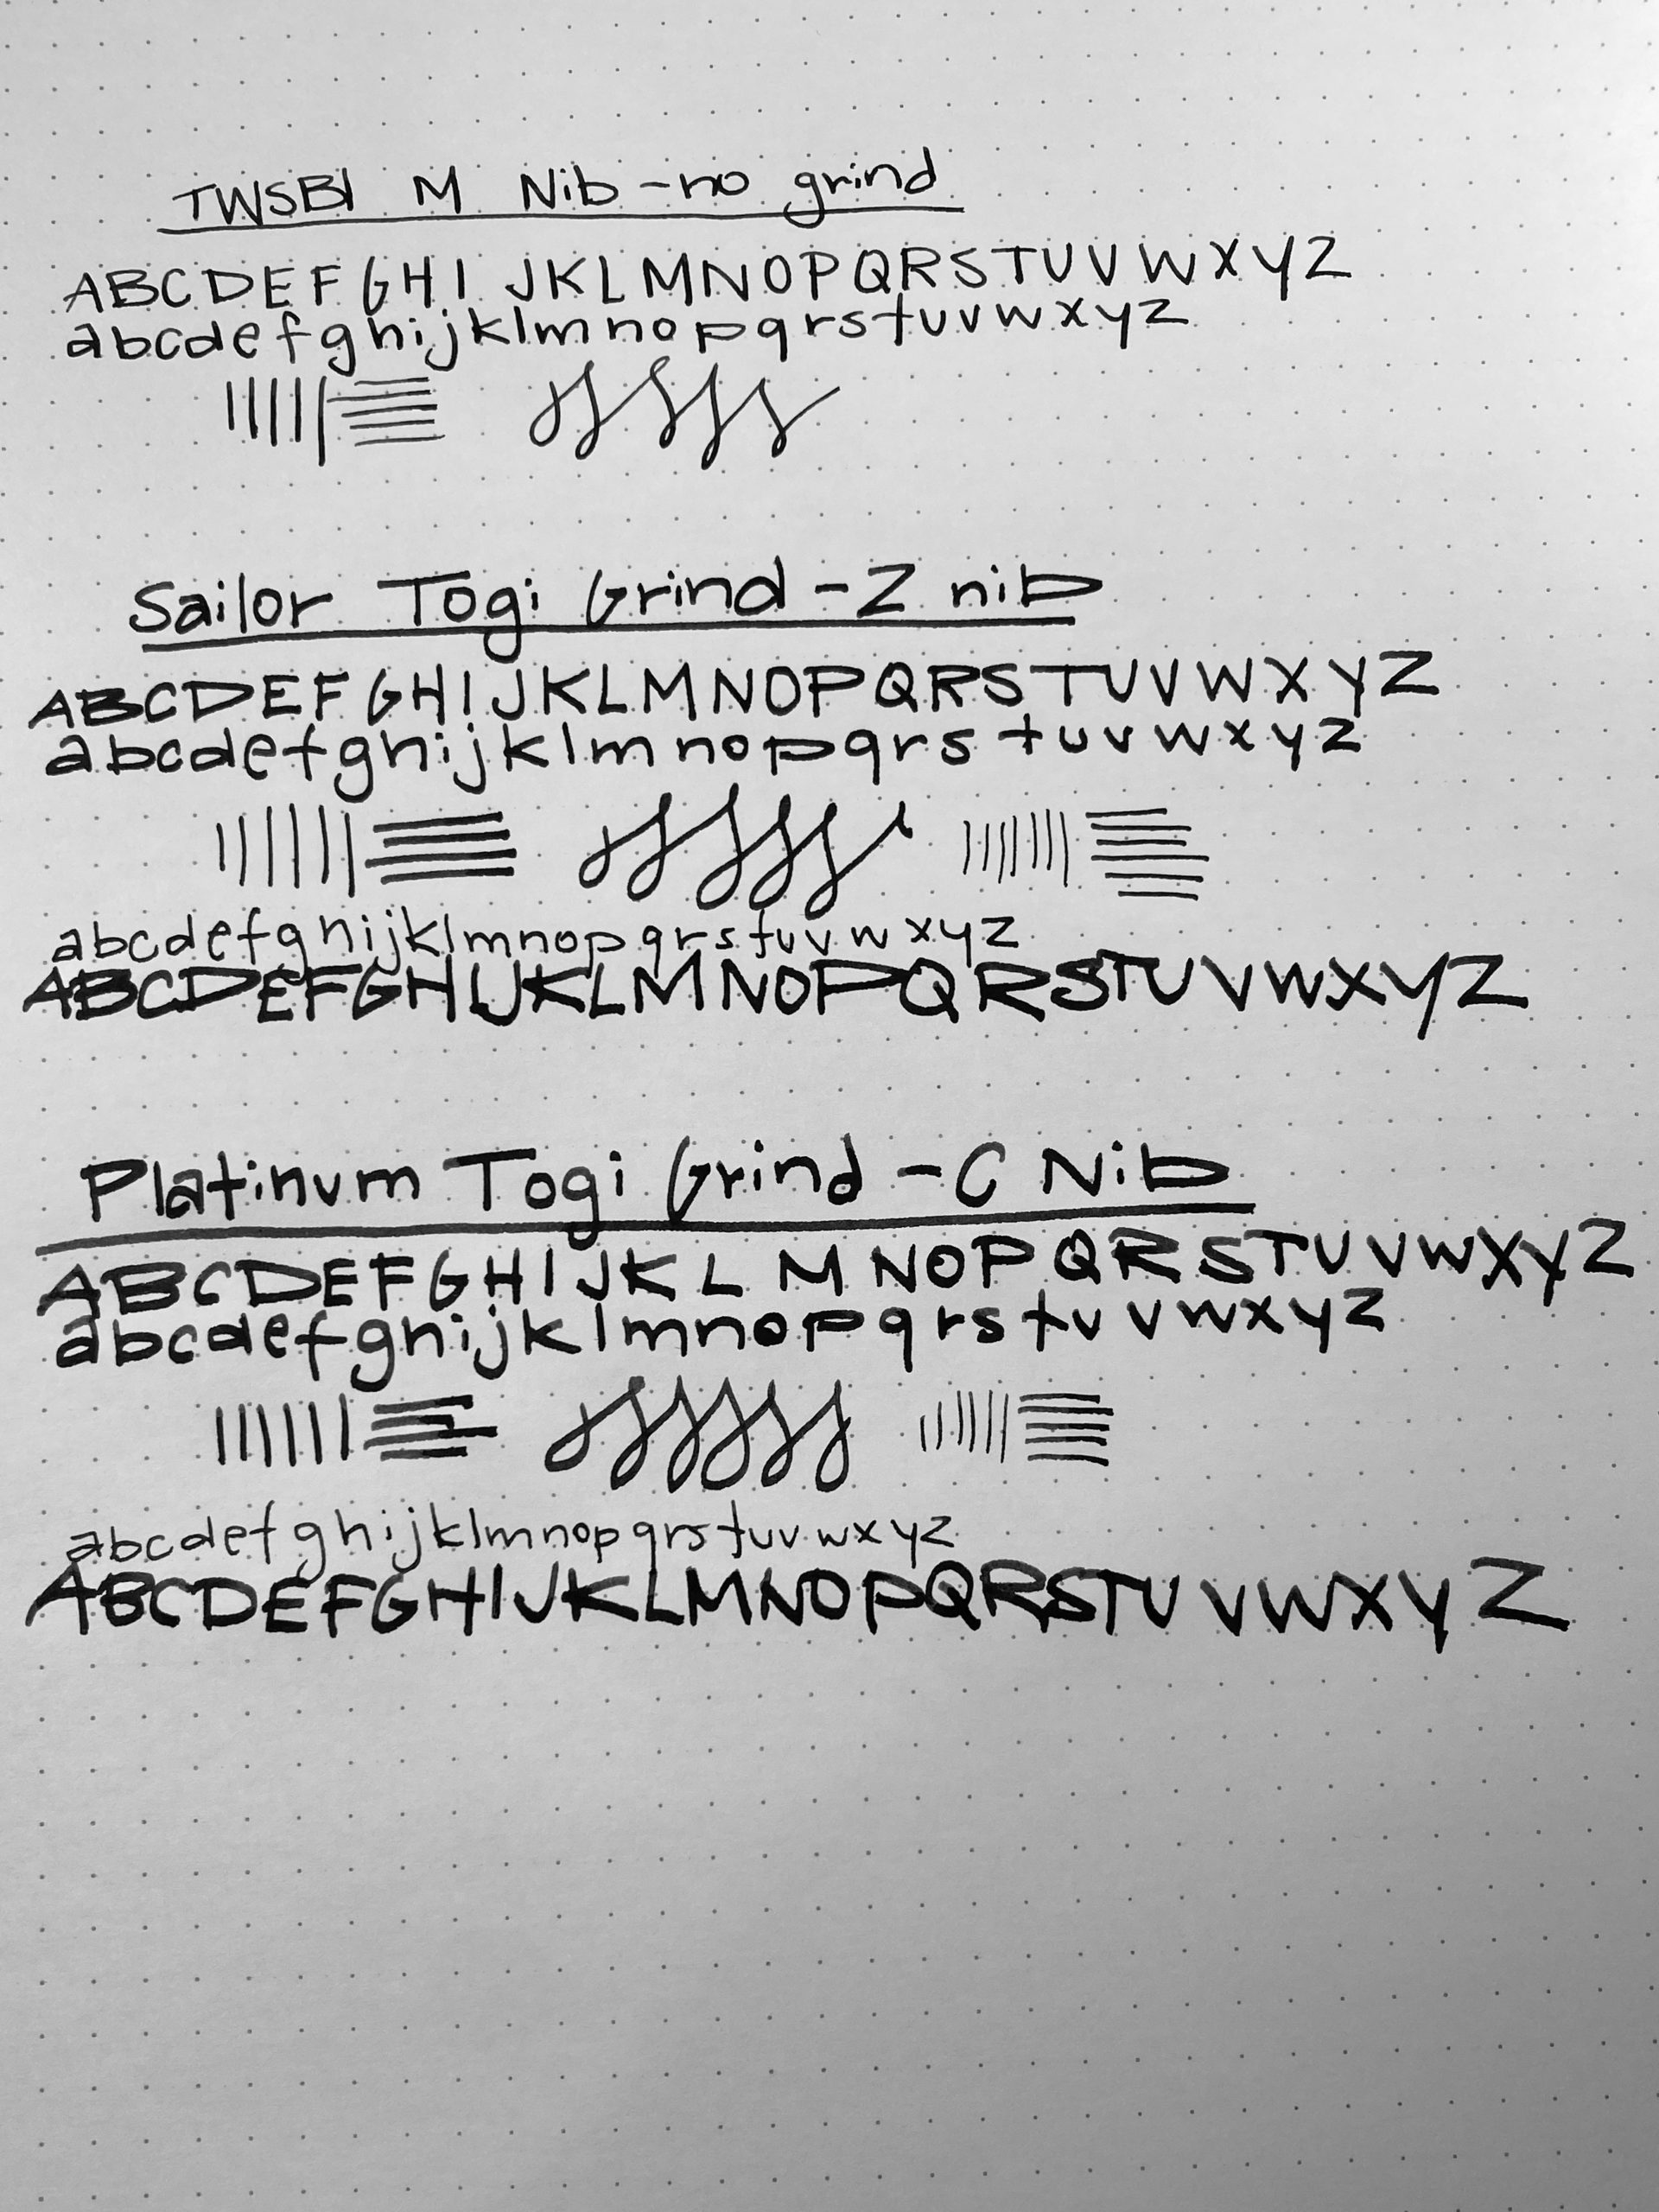 TWSBI M Nib - no grind
ABCDEFGHIJKLMNOPQRSTUVWXYZ
abcdefghijklmnopqrstuvwxyz
Sailor Togi Grind - Z nib
ABCDEFGHIJKLMNOPQRSTUVWXYZ
abcdefghijklmnopqrstuvwxyz
abcdefghijklmnopqrstuvwxyz
ABCDEFGHIJKLMNOPQRSTUVWXYZ
Platinum Togi Grind - C Nib
ABCDEFGHIJKLMNOPQRSTUVWXYZ
abcdefghijklmnopqrstuvwxyz
abcdefghijklmnopqrstuvwxyz
ABCDEFGHIJKLMNOPQRSTUVWXYZ